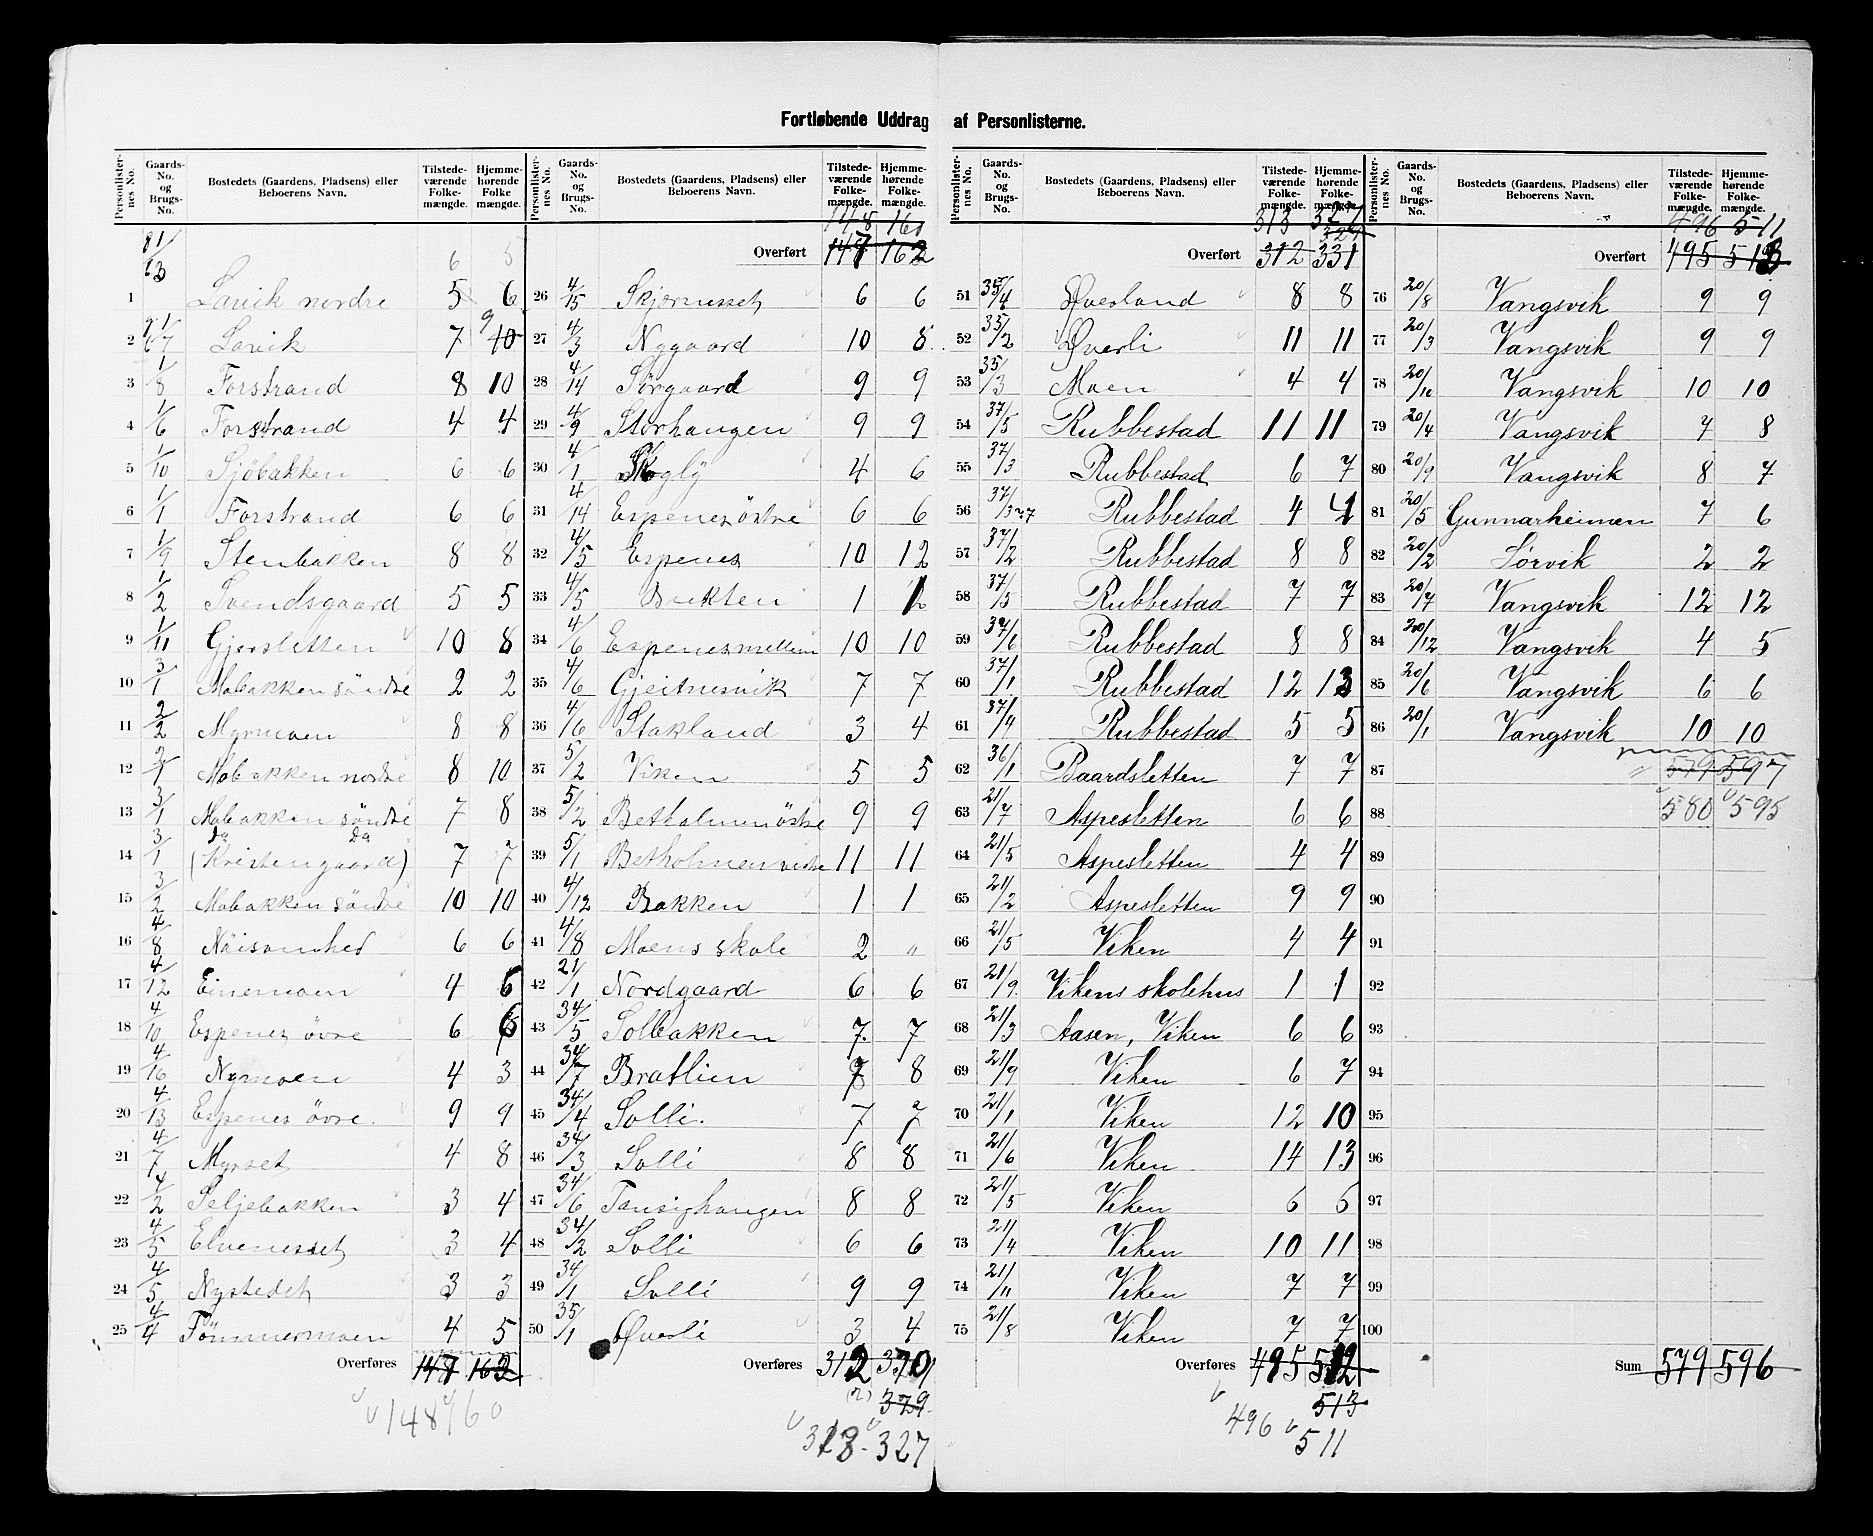 Fortløbende Uddrag af Personlisterne.
Personlister-nes No. Gaards-No. og Brugs-No. Bostedets (Gaardens, Pladsens) eller Beboerens Navn. Tilstede-værende Folke-mængde. Hjemme-hørende Folke mængde.
1 Lavik nordre 5 6
2 Lavik 7 10 9
3 1/8 Forstrand 8 10
4 1/6 Forstrand 4 4
5 1/10 Sjöbakken 6 6
6 1/1 Forstrand 6 6
7 1/9 Stenbakken 8 8
8 1/2 Svendsgaard 5 5
9 1/11 Gjersletten 10 8
10 3/1 Mobakken söndre 2 2
11 2/2 Myrmoen 8 8
12 2/1 Mobakken nordre 8 10
13 3/1 Mobakken söndre 7 8
14 3/1 do do (Kristengaard) 7 7
15 3/2 Mobakken söndre 10 10
16 4/8 Nöisomhed 6 6
17 4/12 Einemoen 4 6
18 4/10 Espenes övre 6 6
19 4/16 Nymoen 4 3
20 4/13 Espenes övre 9 9
21 4/7 Myrset 4 8
22 4/2 Seljebakken 3 4
23 4/5 Elvenesset 3 4
24 4/5 Nystedet 3 3
25 4/4 Tömmermoen 4 5
Overføres 147 162
148 160
Personlister-nes No. Gaards-No. og Brugs-No. Bostedets (Gaardens, Pladsens) eller Beboerens Navn. Tilstede-værende Folke-mængde. Hjemme-hørende Folke-mængde.
148 160
Overført 147 162
26 4/15 Skjærnesset 6 6
27 4/3 Nygaard 10 8
28 4/14 Sörgaard 9 9
29 4/9 Storhaugen 9 9
30 4/1 Skogly 4 6
31 4/14 Espenes östre 6 6
32 4/5 Espenes 10 12
33 4/5 Brekten 1 1
34 4/6 Espenes mellem 10 10
35 4/6 Gjeitnesvik 7 7
36 4/6 Stakland 3 4
37 5/2 Viken 5 5
38 5/2 Betholmen östre 9 9
39 5/1 Betholmen vestre 11 11
40 4/12 Bakken 1 1
41 4/8 Moens skole 2 "
42 21/1 Nordgaard 6 6
43 34/5 Solbakken 7 7
44 34/7 Bratlien 7 8
45 34/4 Solli 7 7
46 34/3 Solli 8 8
47 34/6 Tausighaugen 8 8
48 34/2 Solli 6 6
49 34/1 Solli 9 9
50 35/1 Øverli 3 4
Overføres 312
329
313 327
Personlister-nes No. Gaards-No. og Brugs-No. Bostedets (Gaardens, Pladsens) eller Beboerens Navn. Tilstede-værende Folke-mængde. Hjemme-hørende Folke-mængde.
313 327
Overført 312 331
51 35/4 Øverland 8 8
52 35/2 Øverli 11 11
53 35/3 Moen 4 4
54 37/5 Rubbestad 11 11
55 37/3 Rubbestad 6 7
56 Rubbestad 4 4
57 37/2 Rubbestad 8 8
58 37/5 Rubbestad 7 7
59 37/6 Rubbestad 8 8
60 37/1 Rubbestad 12 13
61 37/4 Rubbestad 5 5
62 36/1 Baardsletten 7 7
63 21/7 Aspesletten 6 6
64 21/5 Aspesletten 4 4
65 21/2 Aspesletten 9 9
66 21/5 Viken 4 4
67 21/9 Vikens skolehus 1 1
68 21/3 Aasen, Viken 6 6
69 21/9 Viken 6 7
70 21/1 Viken 12 10
71 21/6 Viken 14 13
72 21/5 Viken 6 6
73 21/4 Viken 10 11
74 21/11 Viken 7 7
75 21/8 Viken 7 7
Overføres 495 512
513
496 511
Personlister-nes No. Gaards-No. og Brugs-No. Bostedets (Gaardens, Pladsens) eller Beboerens Navn. Tilstede-værende Folke-mængde. Hjemme-hørende Folke-mængde.
496 511
Overført 495 513
76 20/8 Vangsvik 9 9
77 20/3 Vangsvik 9 9
78 20/10 Vangsvik 10 10
79 20/4 Vangsvik 7 8
80 20/9 Vangsvik 8 7
81 20/5 Gunnarheimen 7 6
82 20/2 Sørvik 2 2
83 20/7 Vangsvik 12 12
84 20/12 Vangsvik 4 5
85 20/6 Vangsvik 6 6
86 20/1 Vangsvik 10 10
87 " 579 597
88 580 595
89
90
91
92
93
94
95
96
97
98
99
100
Sum 579 596